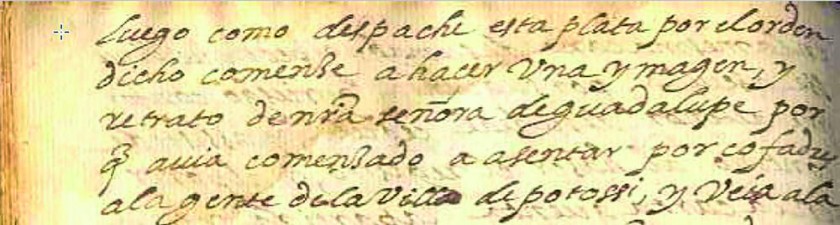 luego como despache esta plata por el orden
dicho comense a hacer Una ymagen, y
retrato de nrã señora de guadalupe por
q̃ avia comensado a asentar por cofadres
ala gente dela Villa de potossi, y Veia ala